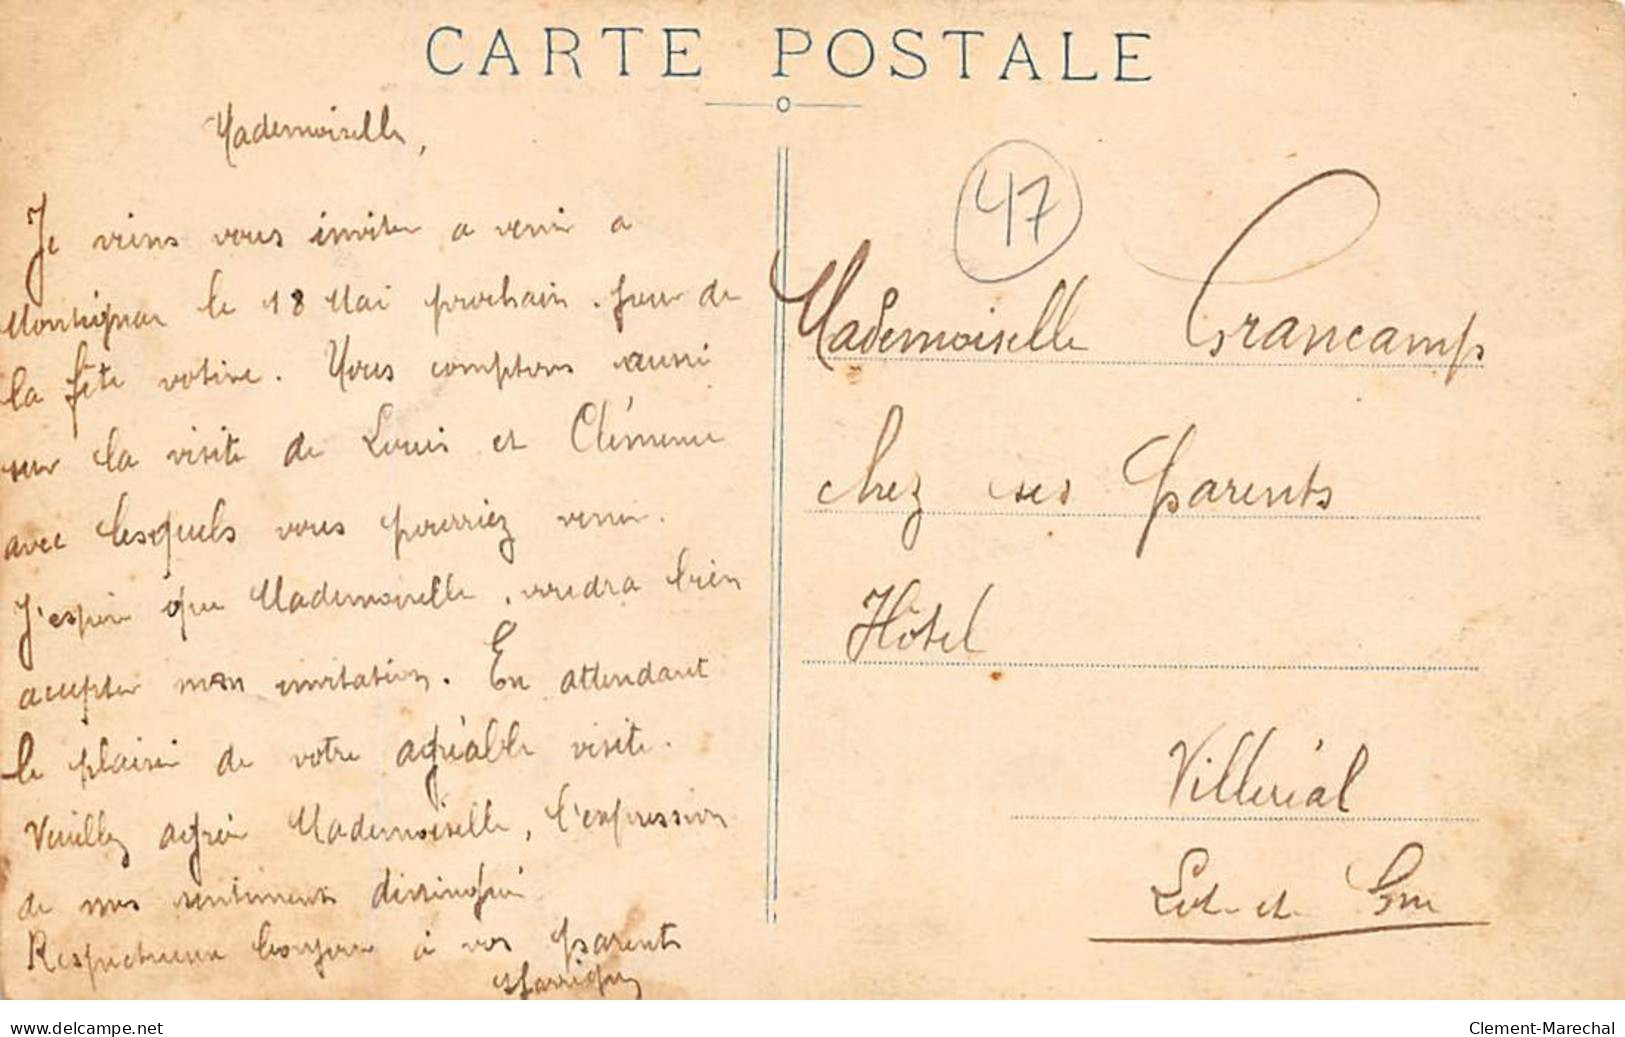 CARTE POSTALE
Mademoiselle,
Je viens vous inviter a venir a
Montignac le 18 Mai prochain. jour de
la fête votive. Nous comptons aussi
sur la visite de Louis et Clémence
avec lesquels vous pourriez venir.
J'espère que Mademoiselle, voudra bien
accepter mon invitation. En attendant
le plaisir de votre agréable visite.
Veuillez agréer Mademoiselle, l'expression
de mes sentiments distingués
Respectueux bonjour à vos parents
47
Mademoiselle Grancamp
chez ses Parents
Hôtel
Villeréal
Lot-et-Gne
www.delcampe.net
Clement-Marechal